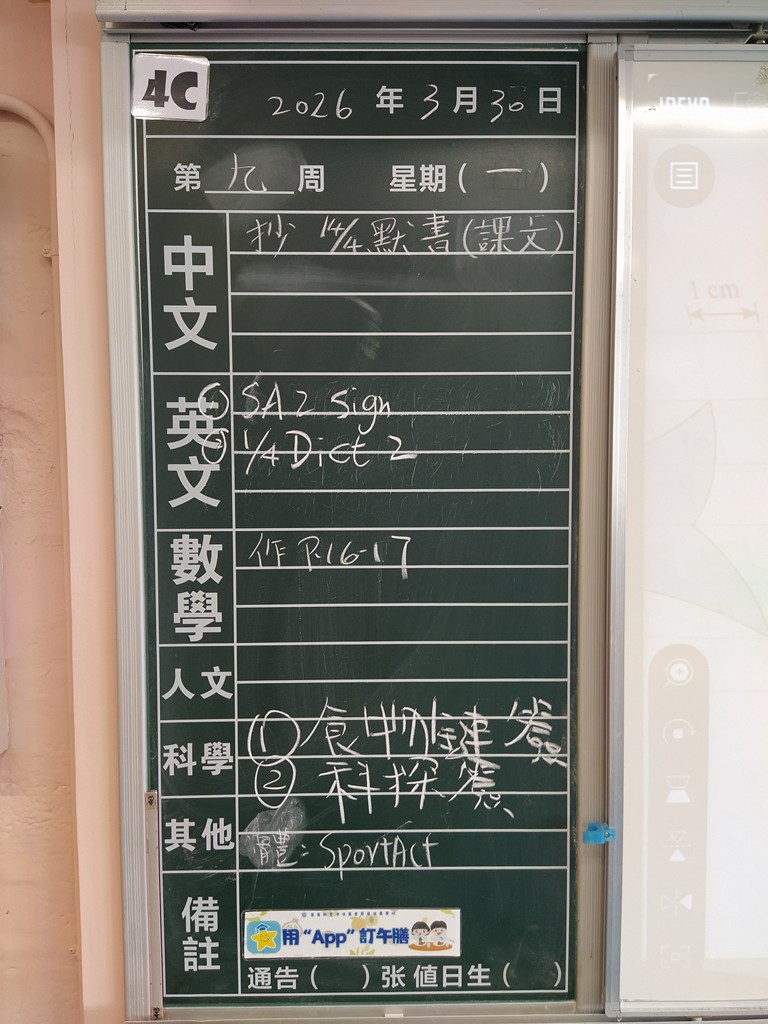 4C
2026 年 3 月 30 日
第 九 周 星期 ( 一 )
中文
抄 14/4 默書 (課文)
英文
① SA 2 Sign
② 1/4 Dict 2
數學
作 P.16-17
人文
科學
① 食物鏈 簽
② 科探簽
其他
體: SportAct
備註
用 “App” 訂午膳
通告 ( ) 张 值日生 ( )
1 cm